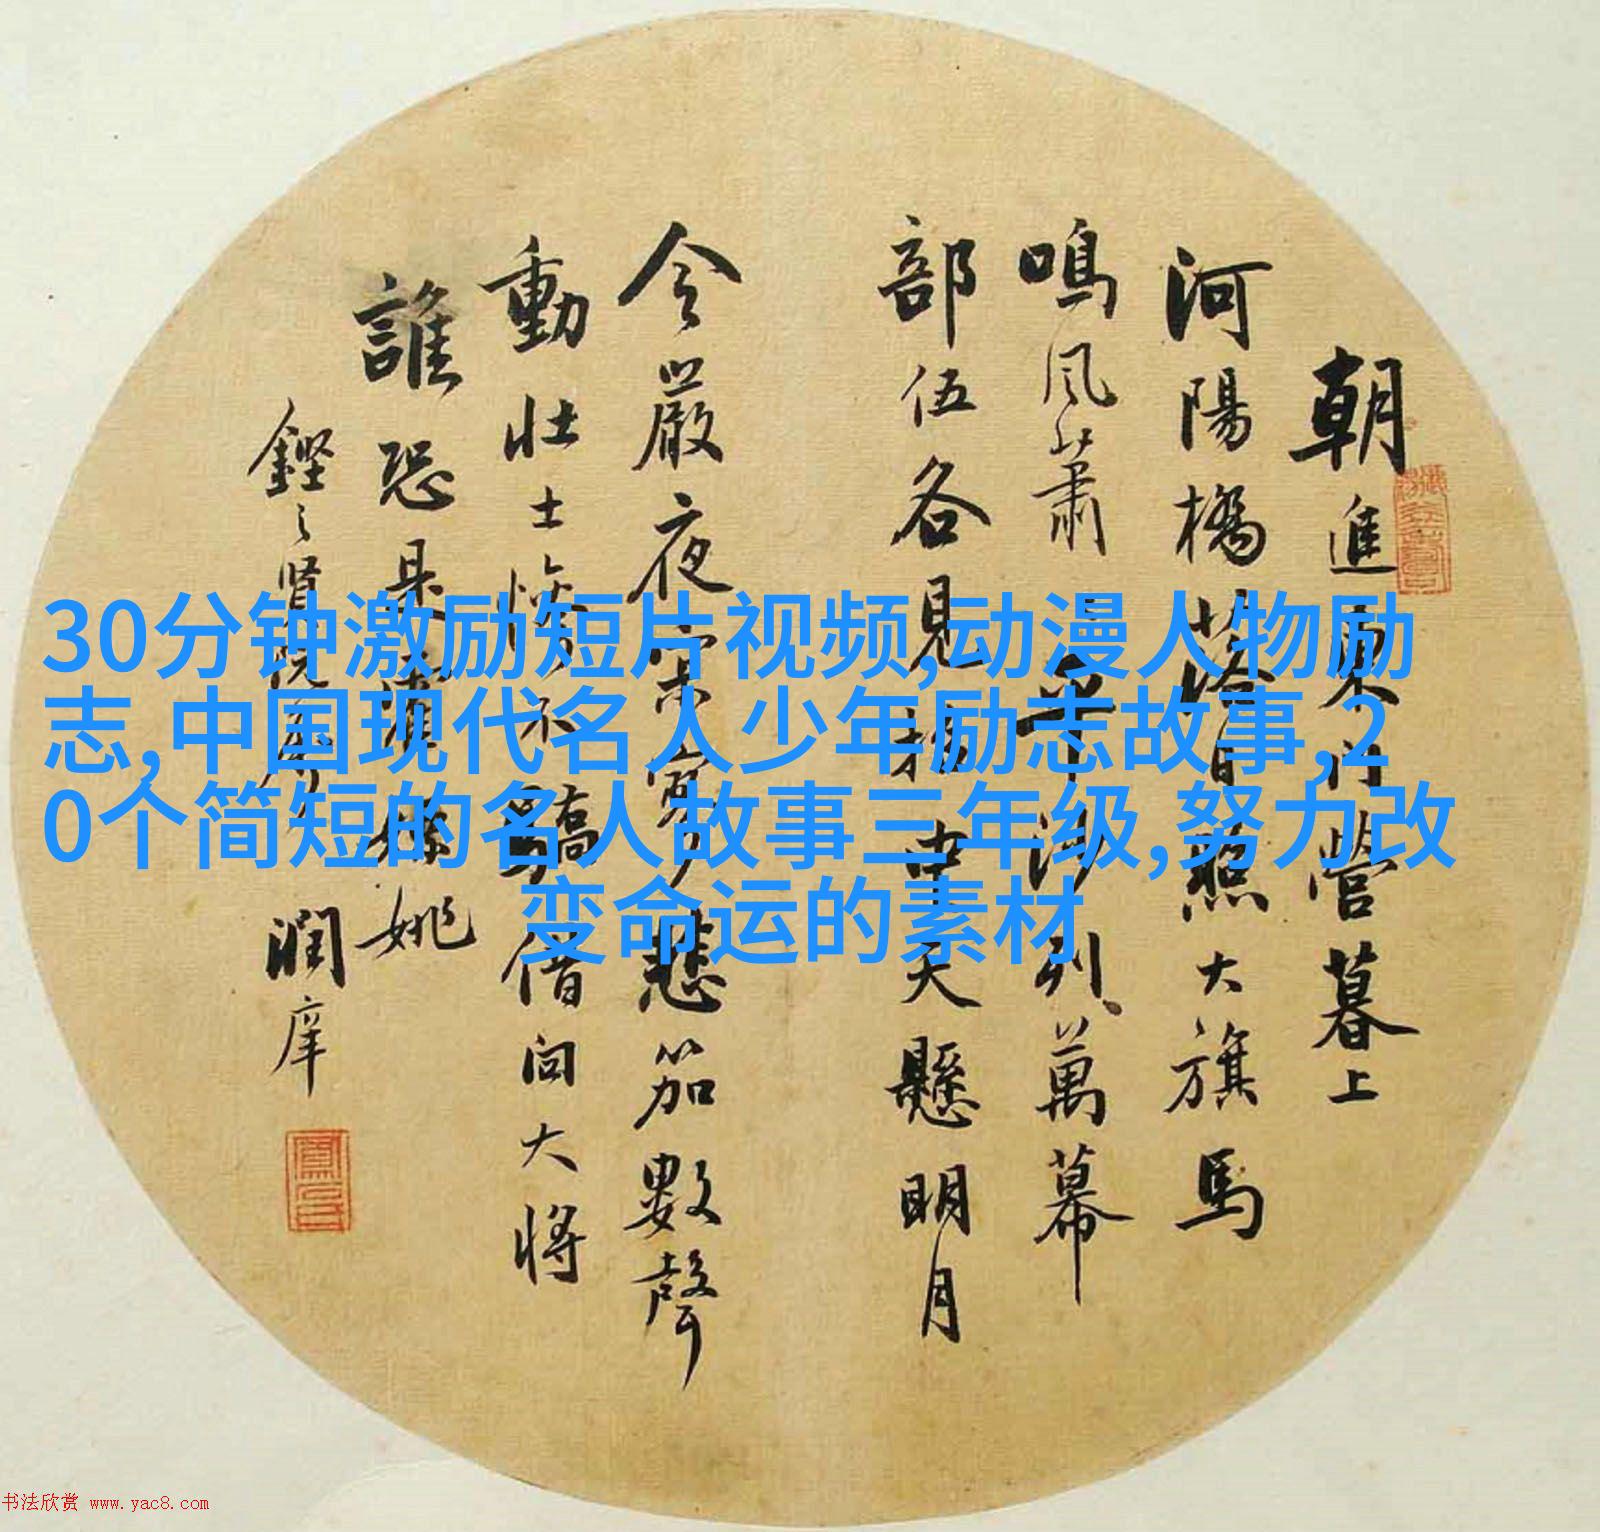 朝進東門營暮上
河陽橋落日照大旗馬
鳴風蕭平沙列萬幕
部伍各見招中天懸明月
令嚴夜寂寥悲笳數聲
動壯士慘不驕借問大將
誰恐是霍嫖姚
潤庠
30分钟激励短片视频,动漫人物励
志,中国现代名人少年励志故事,2
0个简短的名人故事三年级,努力改
变命运的素材
书法欣赏 www.yac8.com